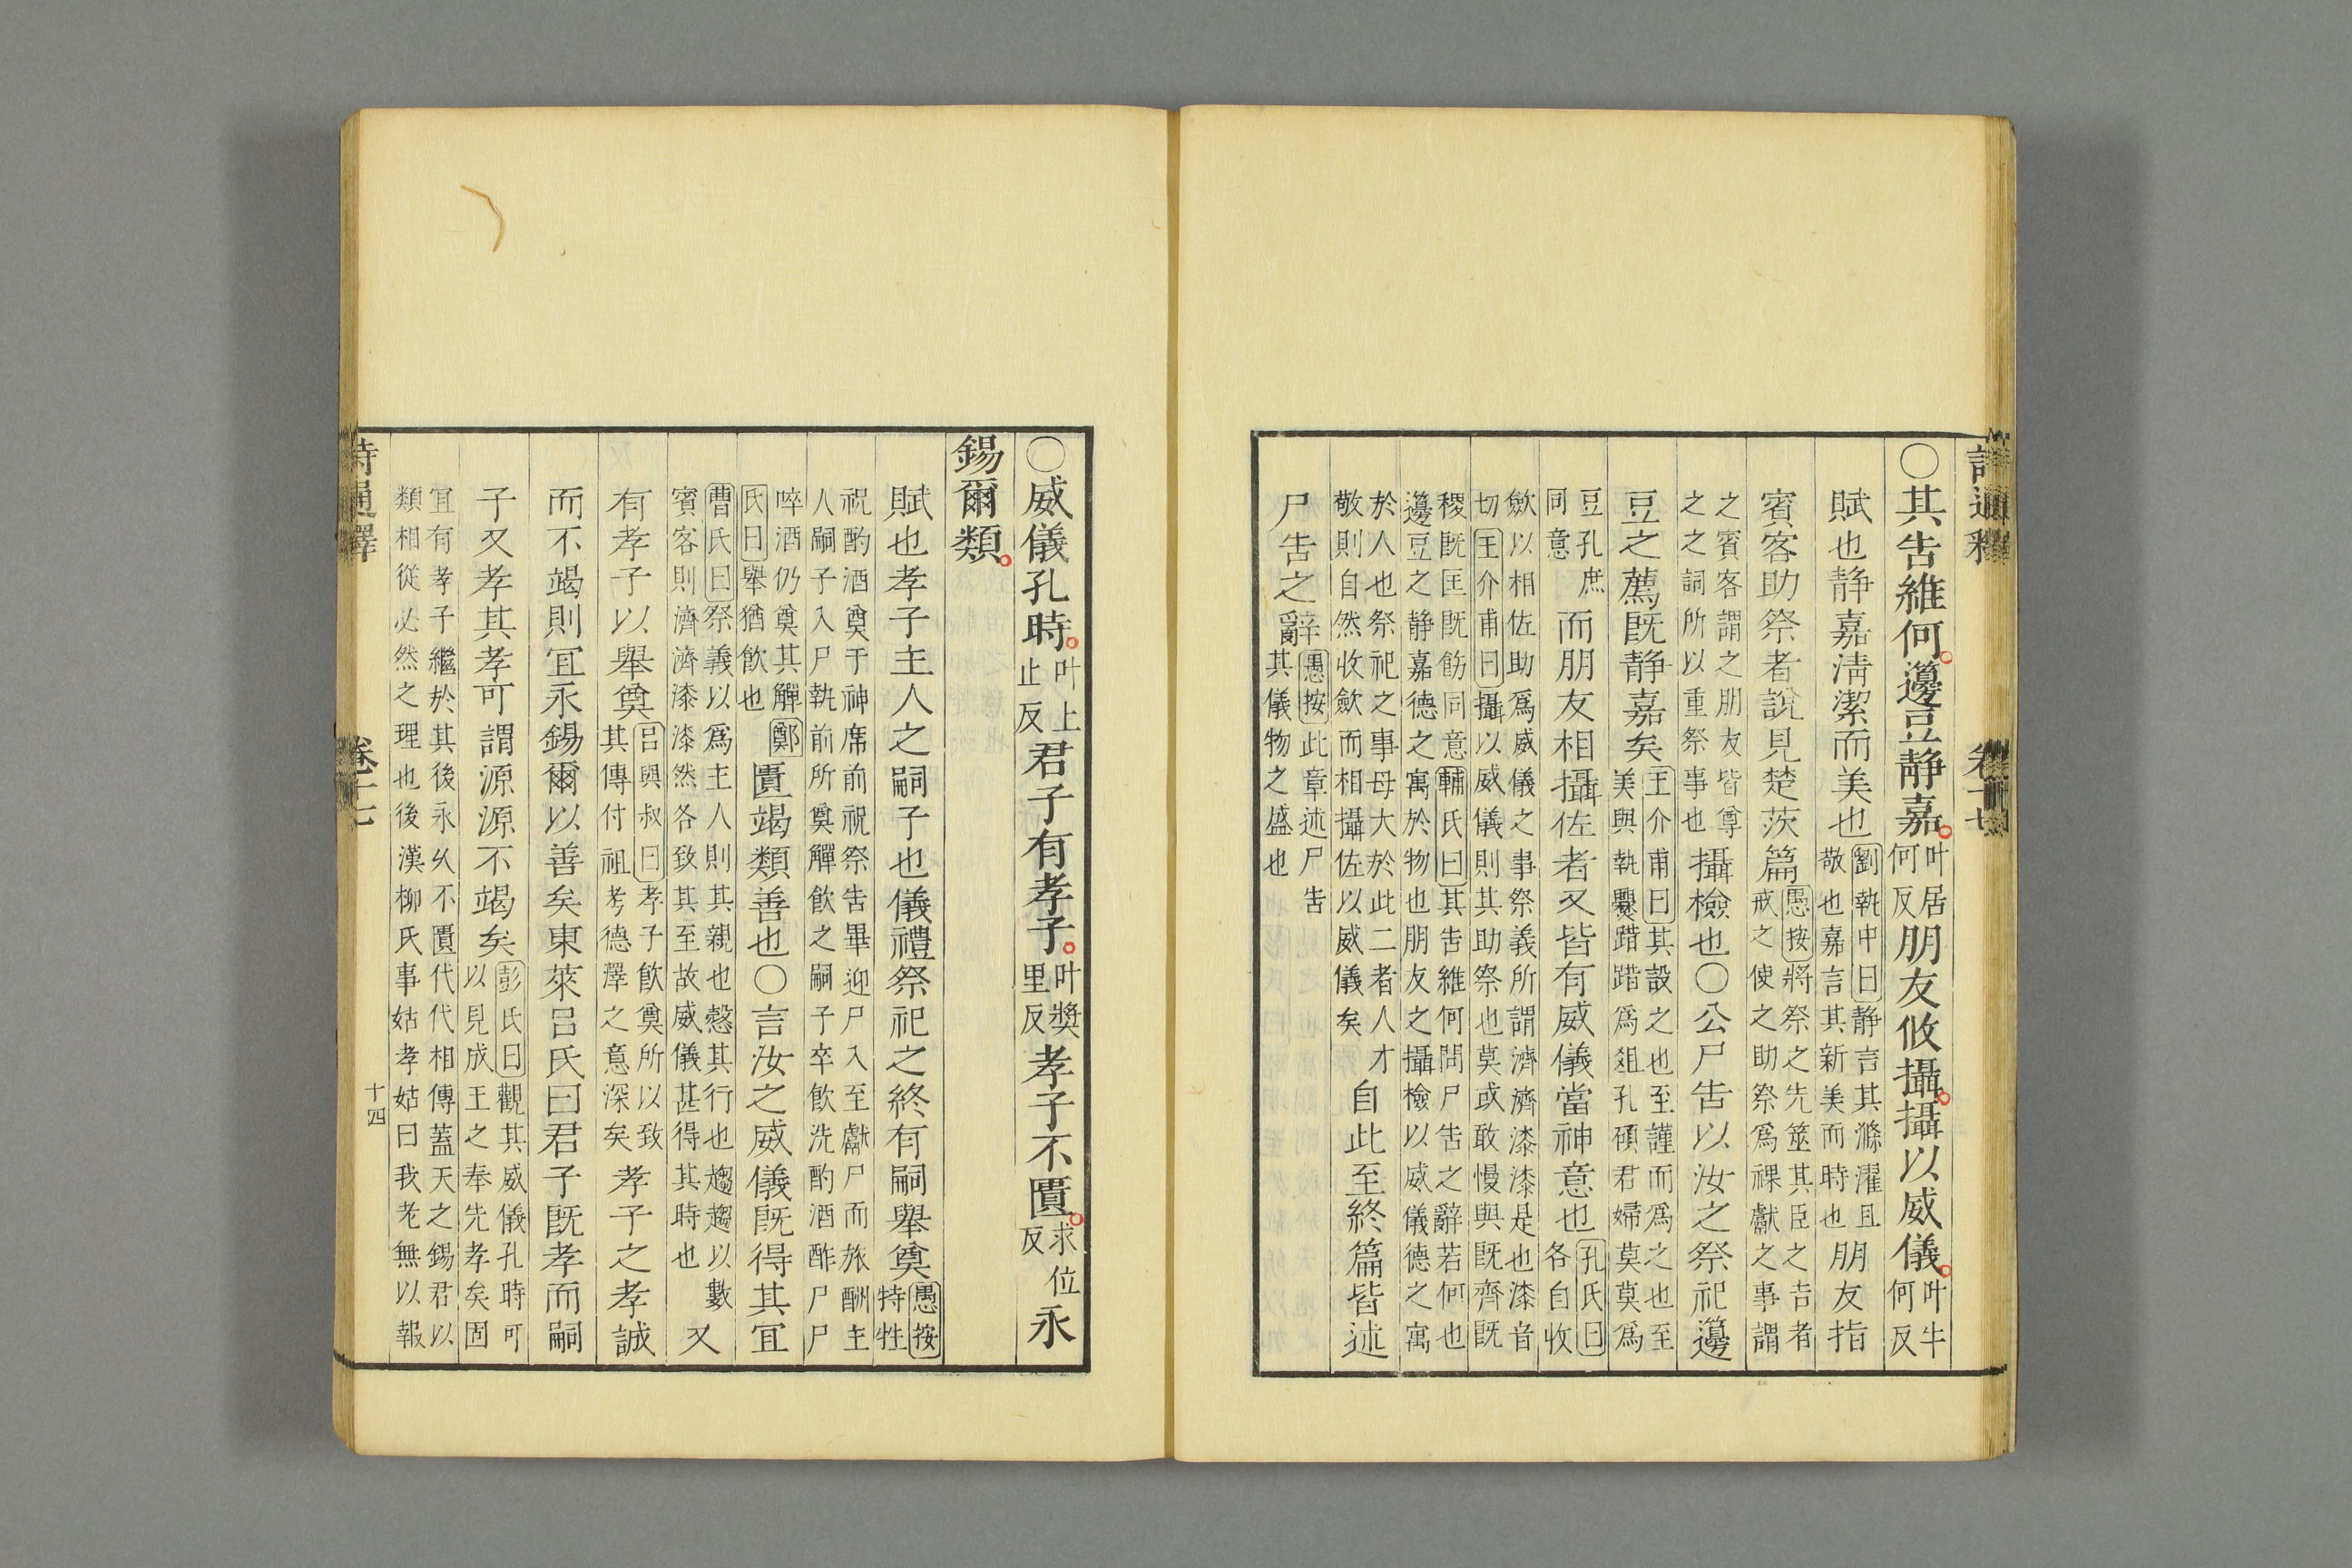 詩通釋　卷十七
○其告維何籩豆静嘉叶居何反朋友攸攝攝以威儀叶牛何反
賦也静嘉清潔而美也劉執中曰静言其滌濯且敬也嘉言其新美而時也朋友指
賓客助祭者說見楚茨篇愚按將祭之先筮其臣之吉者戒之使之助祭爲祼獻之事謂
之賓客謂之朋友皆尊之之詞所以重祭事也攝檢也○公尸告以汝之祭祀籩
豆之薦既静嘉矣王介甫曰其設之也至謹而爲之也至美與執爨踖踖爲俎孔碩君婦莫莫爲
豆孔庶同意而朋友相攝佐者又皆有威儀當神意也孔氏曰各自收
歛以相佐助爲威儀之事祭義所謂濟濟漆漆是也漆音切王介甫曰攝以威儀則其助祭也莫或敢慢與既齊既
稷既匡既飭同意輔氏曰其告維何問尸告之辭若何也籩豆之静嘉德之寓於物也朋友之攝檢以威儀德之寓
於人也祭祀之事母大於此二者人才敬則自然收歛而相攝佐以威儀矣自此至終篇皆述
尸告之辭愚按此章述尸告其儀物之盛也
○威儀孔時叶上止反君子有孝子叶奬里反孝子不匱求位反永
錫爾類
賦也孝子主人之嗣子也儀禮祭祀之終有嗣舉奠愚按特牲
祝酌酒奠于神席前祝祭告畢迎尸入至獻尸而旅酬主人嗣子入尸執前所奠觶飲之嗣子卒飲洗酌酒酢尸尸
啐酒仍奠其觶鄭氏曰舉猶飲也匱竭類善也○言汝之威儀既得其宜
曹氏曰祭義以爲主人則其親也慤其行也趨趨以數賓客則濟濟漆漆然各致其至故威儀甚得其時也又
有孝子以舉奠呂與叔曰孝子飲奠所以致其傳付祖考德澤之意深矣孝子之孝誠
而不竭則宜永錫爾以善矣東萊呂氏曰君子既孝而嗣
子又孝其孝可謂源源不竭矣彭氏曰觀其威儀孔時可以見成王之奉先孝矣固
宜有孝子繼於其後永久不匱代代相傳蓋天之錫君以類相從必然之理也後漢柳氏事姑孝姑曰我老無以報
詩通釋　卷十七　十四